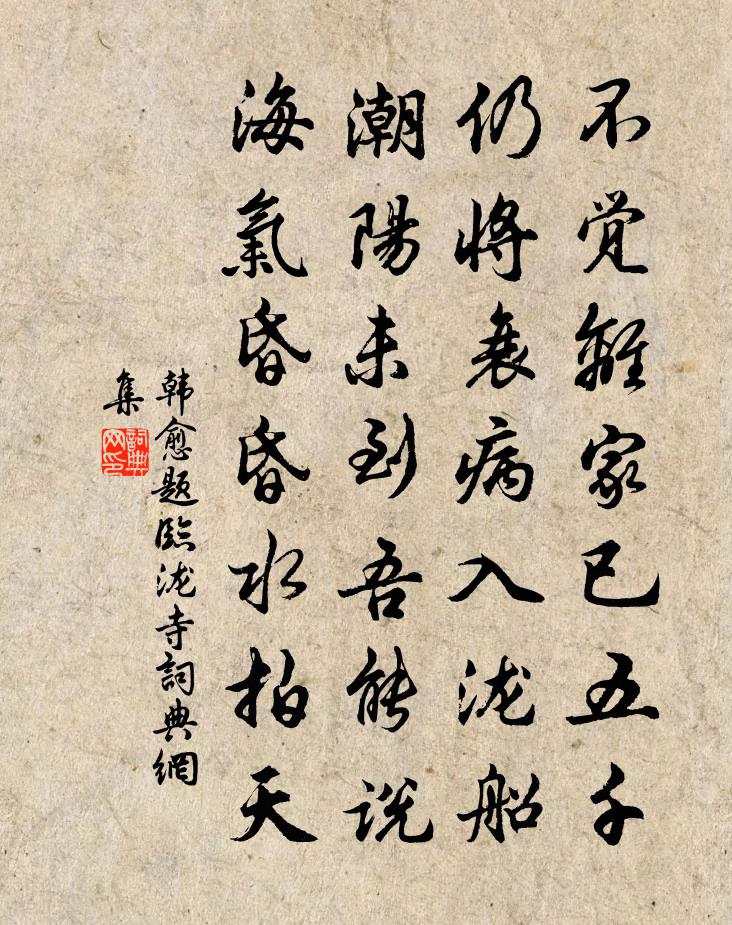 不觉離家已五千
仍將衰病入泷船
潮陽未到吾能説
海氣昏昏水拍天
韩愈题臨泷寺詞典網
集
詞典
网印